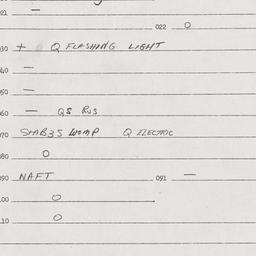 021 —
022 O
030 + Q FLASHING LIGHT
040 —
050 —
060 — QS RVS
070 Q ELECTRIC
080 O
090 NAFT 091 —
100 O
110 O